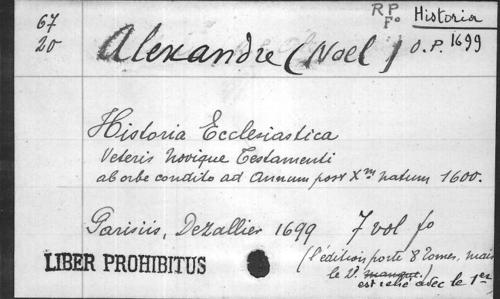 67
20
R P
Fo
Historia
O.P. 1699
Alexandre (Noel)
Historia Ecclesiastica
Veteris Novique Testamenti
ab orbe condito ad Annum post Xm natum 1600.
Parisiis, Dezallier 1699 7 vol fo
(l'édition porte 8 tomes, mais
le 2e manque.)
est relié avec le 1er
LIBER PROHIBITUS